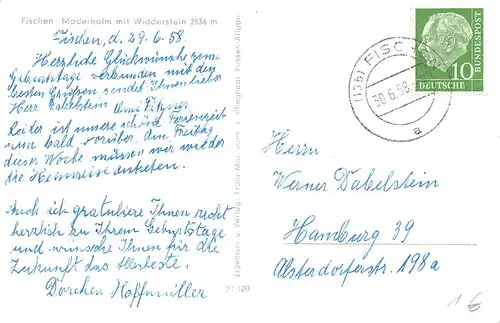 Fischen Maderhalm mit Widderstein 2536 m
Fischen, d. 29. 6. 58.
Herzliche Glückwünsche zum
Geburtstage verbunden mit den
besten Grüßen sendet Ihnen lieber
Herr Dabelstein Omi Fitzner
Leider ist unsere schöne Ferienzeit
nun bald vorüber. Am Freitag
dieser Woche müssen wir wieder
die Heimreise antreten.
Auch ich gratuliere Ihnen recht
herzlich zu Ihrem Geburtstage
und wünsche Ihnen für die
Zukunft das Allerbeste.
Dorchen Hoffmüller
Eigentum u. Verlag: Franz Fischen/Allgäu
51 109
(13b) FISCHEN
30.6.58
a
10
DEUTSCHE
BUNDESPOST
Herrn
Werner Dabelstein
Hamburg 39
Alsterdorferstr. 198a
1 €